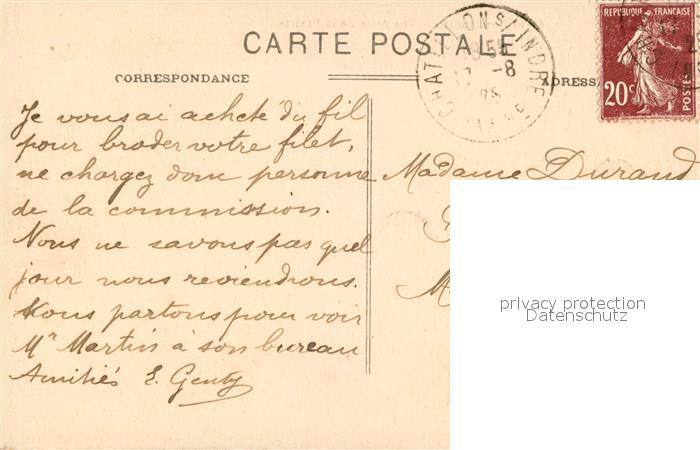 CARTE POSTALE
CORRESPONDANCE
ADRESS
CHATILLON S/ INDRE
-8
REPUBLIQUE FRANÇAISE
20c
POSTES
Je vous ai acheté du fil
pour broder votre filet,
ne chargez donc personne
de la commission.
Nous ne savons pas quel
jour nous reviendrons.
Nous partons pour voir
Mr Martin à son bureau
Amitiés E. Genty
Madame Durand
M
privacy protection
Datenschutz